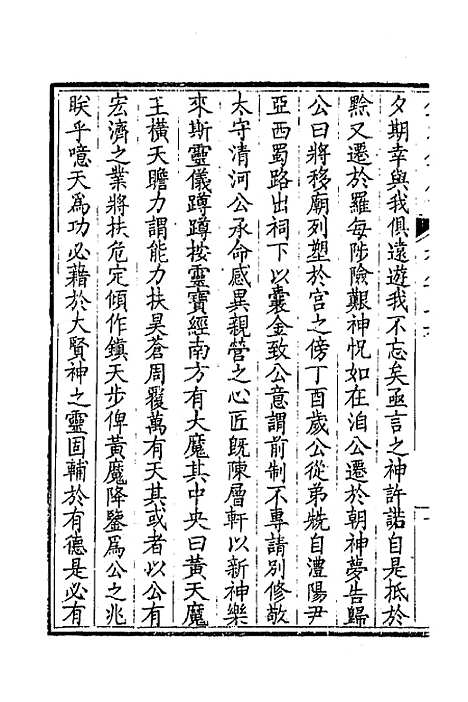 夕期幸與我俱遠遊我不忘矣亟言之神許諾自是抵於
黥又遷於羅每陟險艱神怳如在洎公遷於朝神夢告歸
公曰將移廟列塑於宫之傍丁酉歲公從弟兟自澧陽尹
亞西蜀路出祠下以囊金致公意謂前制不專請別修敬
太守清河公承命感異親營之心匠旣陳層軒以新神樂
來斯靈儀蹲蹲按靈寶經南方有大魔其中央曰黃天魔
王橫天瞻力謂能力扶昊蒼周覆萬有天其或者以公有
宏濟之業將扶危定傾作鎭天步俾黃魔降鑒爲公之兆
朕乎噫天爲功必藉於大賢神之靈固輔於有德是必有